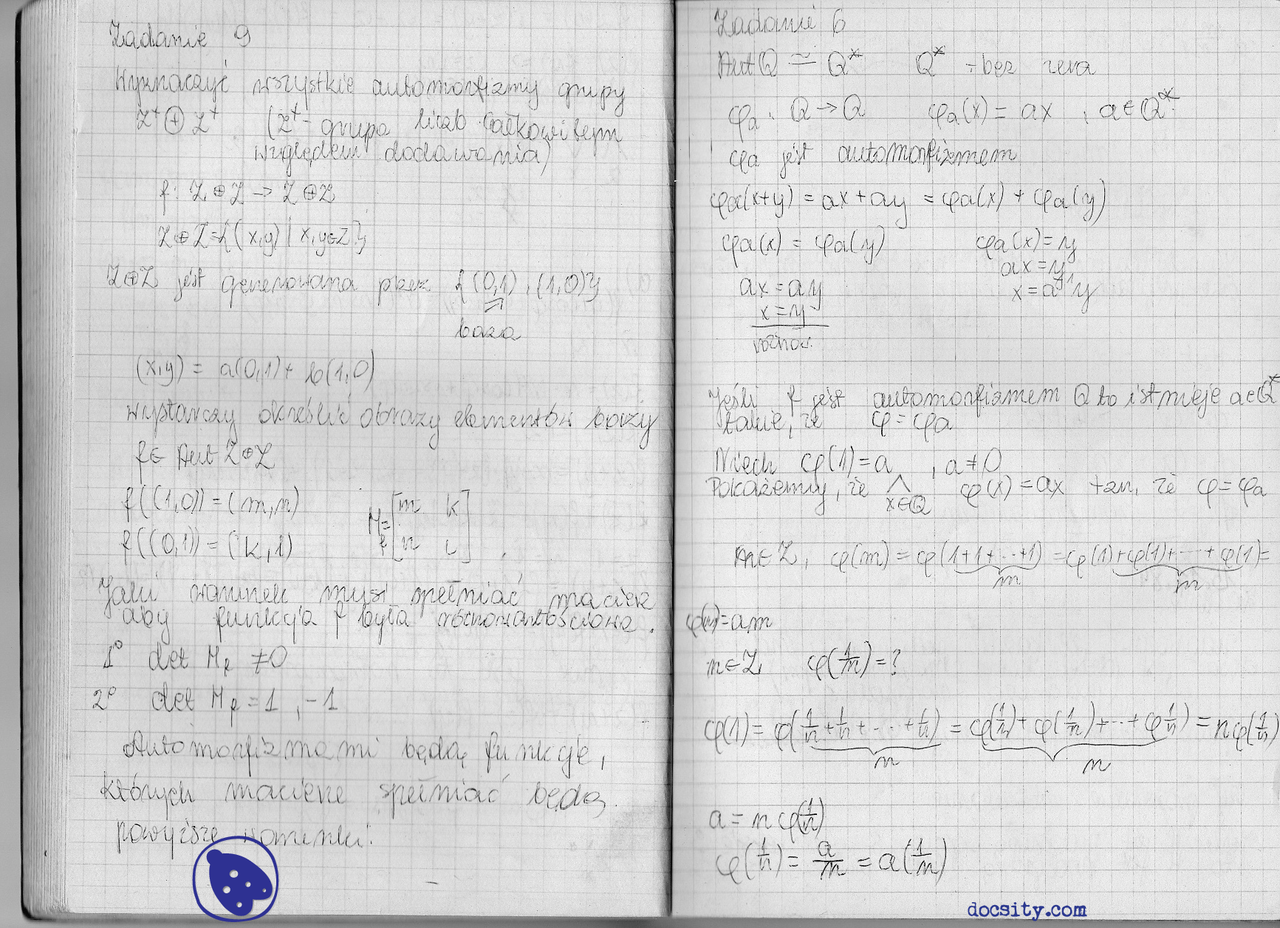 Zadanie 9
Wyznaczyć wszystkie automorfizmy grupy
Z⁺⊕Z⁺. (Z⁺- grupa liczb całkowitym
względem dodawania)
f: Z⊕Z → Z⊕Z
Z⊕Z={(x,y) | x,y∈Z}
Z⊕Z jest generowana przez {(0,1), (1,0)}
baza
(x,y) = a(0,1) + b(1,0)
wystarczy określić obrazy elementów bazy
f∈ Aut Z⊕Z
f((1,0)) = (m,n)
f((0,1)) = (k,l)
M_f = [m k
n l]
Jaki warunek musi spełniać macierz
aby funkcja f była równowartościowa.
1° det M_f ≠0
2° det M_f = 1, -1
Automorfizmami będą funkcje,
których macierze spełniać będą
powyższe warunki.
Zadanie 6
Aut Q ≃ Q* Q* - bez zera
φa: Q → Q φa(x) = ax , a∈Q*
φa jest automorfizmem
φa(x+y) = ax + ay = φa(x) + φa(y)
φa(x) = φa(y) φa(x) = y
ax = ay ax = y
x = y x = a⁻¹y
różnow.
Jeśli f jest automorfizmem Q to istnieje a∈Q*
takie, że φ = φa
Niech φ(1) = a , a≠0
Pokażemy, że ⋀ x∈Q φ(x) = ax tzn, że φ = φa
m∈Z, φ(m) = φ(1+1+...+1) = φ(1)+φ(1)+...+φ(1) =
m m
φ(m) = am
n∈Z, φ(1/n) = ?
φ(1) = φ(1/n + 1/n + ... + 1/n) = φ(1/n) + φ(1/n) + ... + φ(1/n) = nφ(1/n)
n n
a = nφ(1/n)
φ(1/n) = a/n = a(1/n)
docsity.com